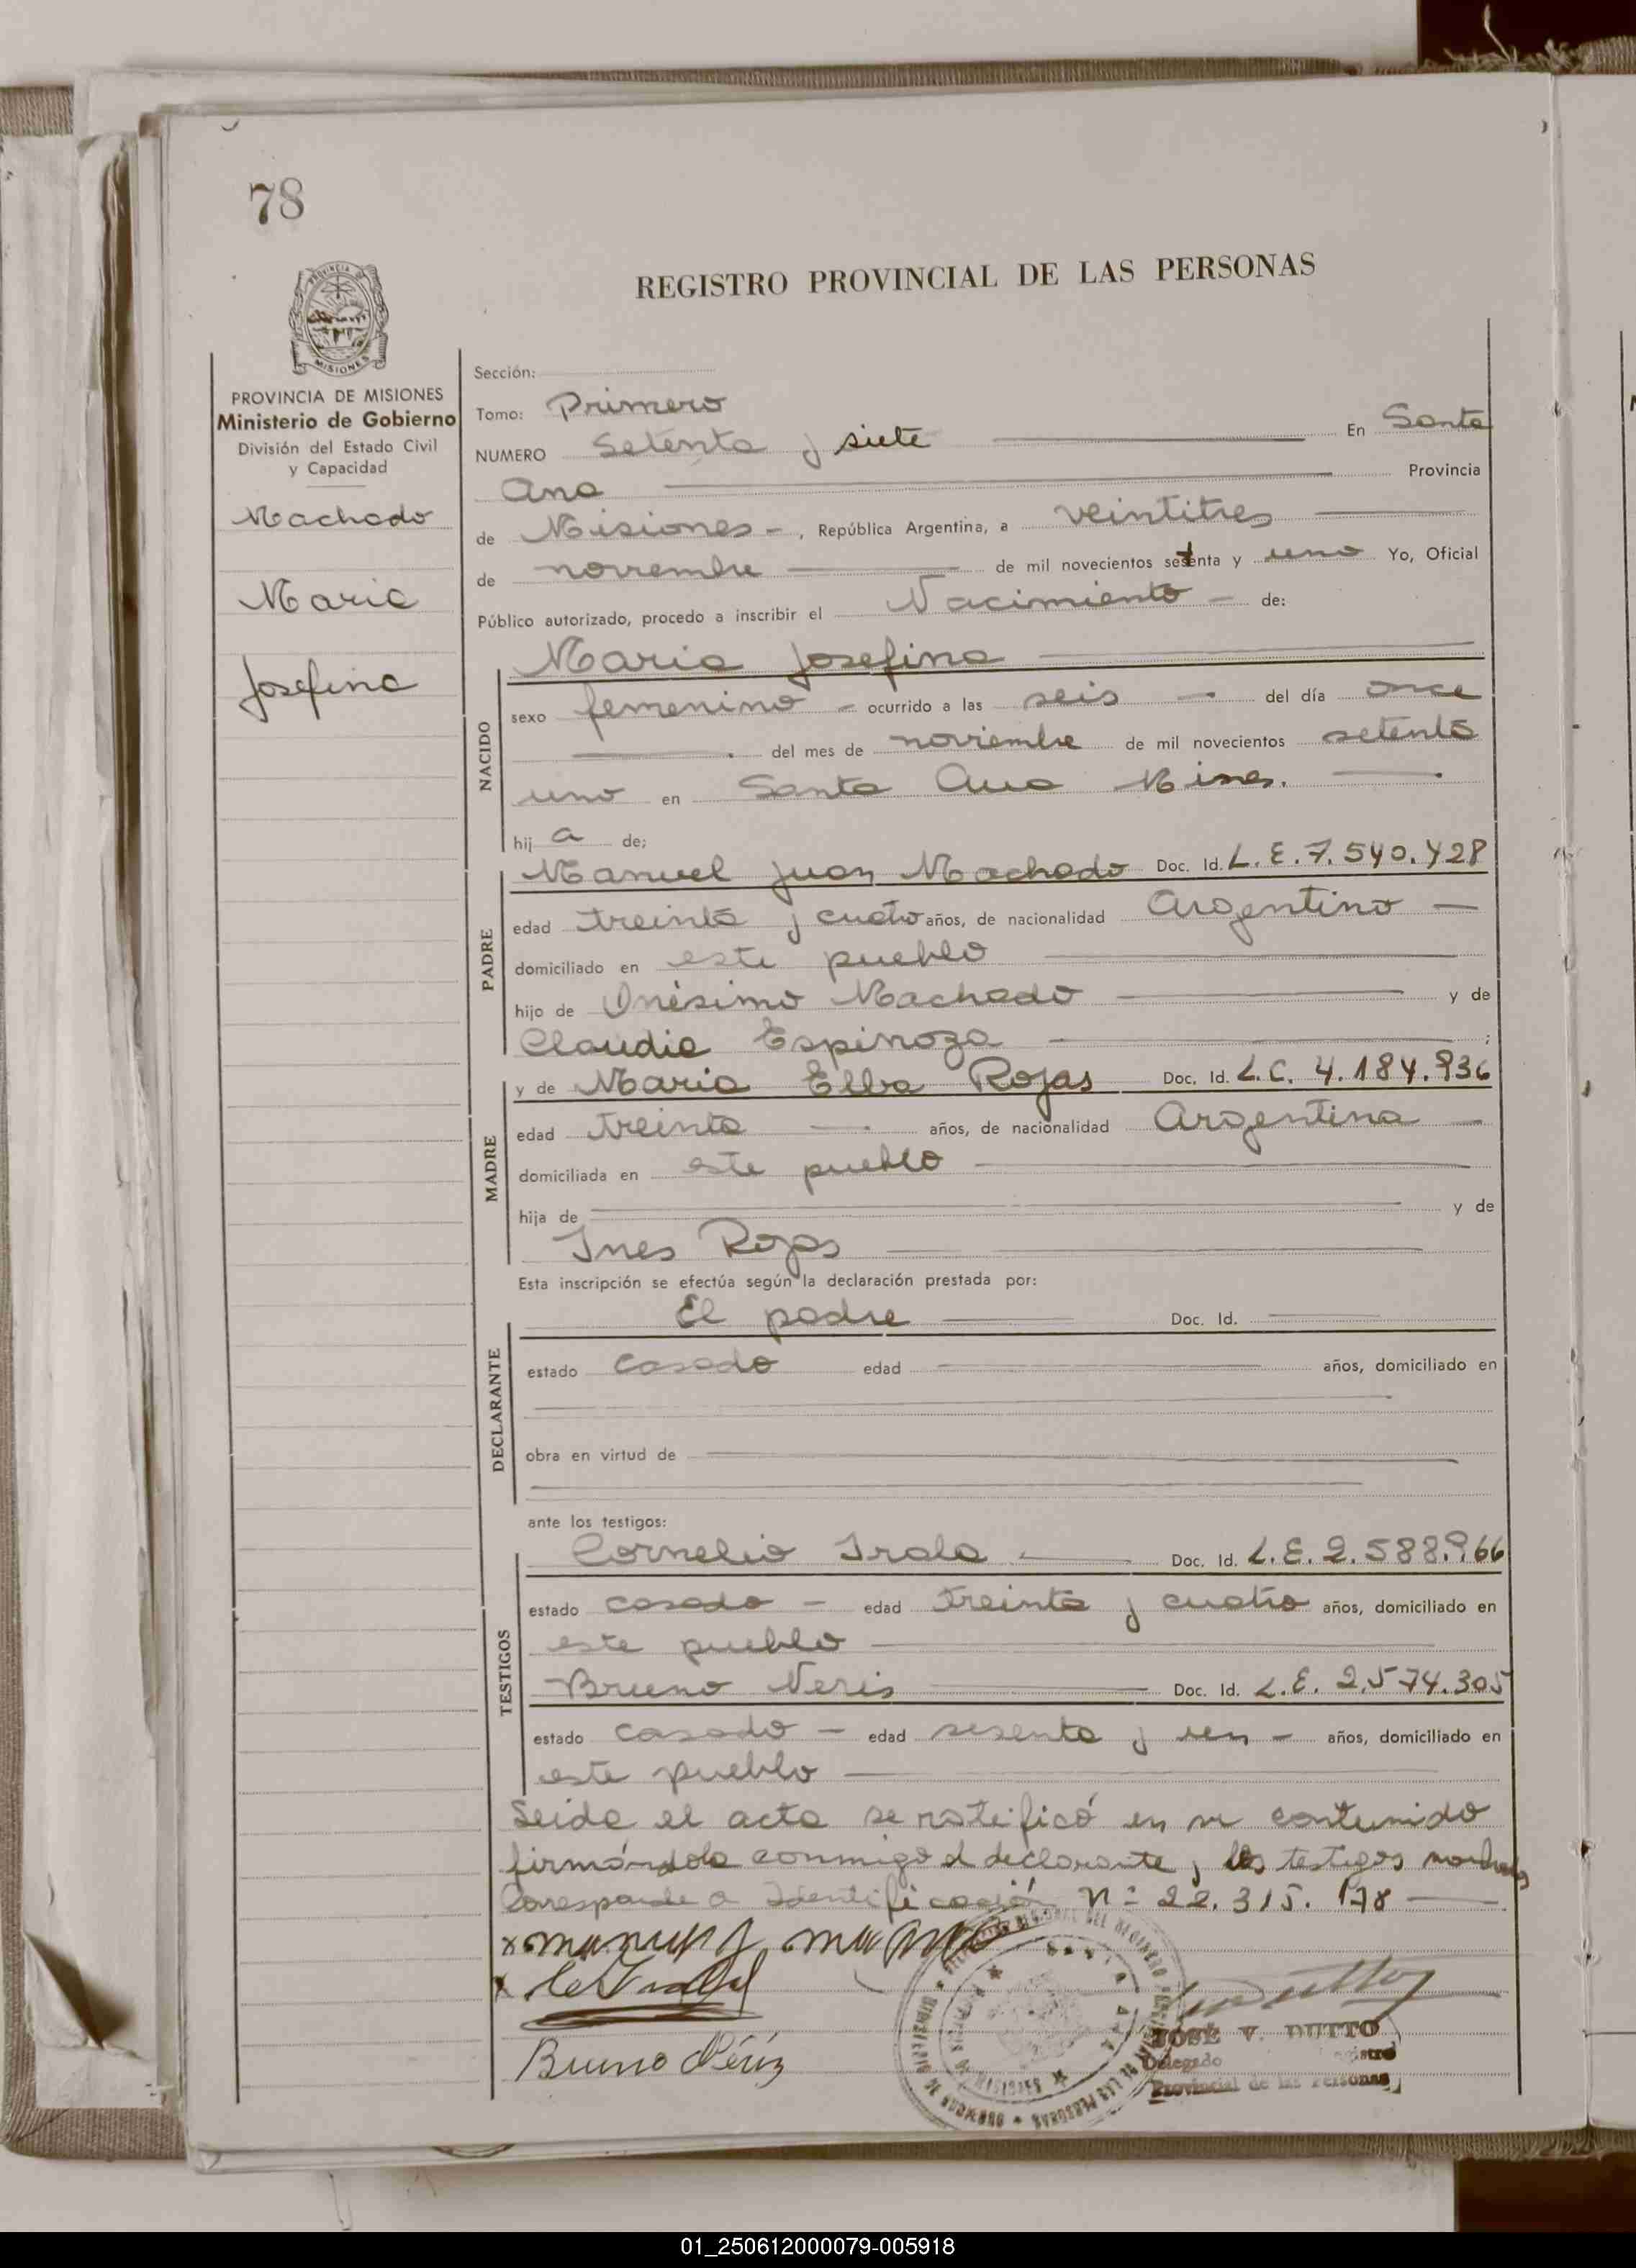 78
REGISTRO PROVINCIAL DE LAS PERSONAS
PROVINCIA DE
MISIONES
PROVINCIA DE MISIONES
Ministerio de Gobierno
División del Estado Civil
y Capacidad
Machado
Maria
Josefina
Sección:
Tomo: Primero
NUMERO Setenta y siete En Santa
Ana Provincia
de Misiones -, República Argentina, a veintitres
de noviembre de mil novecientos setenta y uno Yo, Oficial
Público autorizado, procedo a inscribir el Nacimiento - de:
Maria Josefina
NACIDO
sexo femenino - ocurrido a las seis - del día once
del mes de noviembre de mil novecientos setenta
uno en Santa Ana Mines.
hij a de;
PADRE
Manuel Juan Machado Doc. Id. L.E. 7.540.428
edad treinta y cuatro años, de nacionalidad Argentino -
domiciliado en este pueblo
hijo de Onésimo Machado y de
Claudia Espinoza ;
MADRE
y de Maria Elba Rojas Doc. Id. L.C. 4.184.936
edad treinta años, de nacionalidad Argentina -
domiciliada en este pueblo
hija de y de
Ines Rojas
Esta inscripción se efectúa según la declaración prestada por:
DECLARANTE
El padre Doc. Id.
estado casado edad años, domiciliado en
obra en virtud de
ante los testigos:
TESTIGOS
Cornelio Irala Doc. Id. L.E. 2.588.966
estado casado - edad treinta y cuatro años, domiciliado en
este pueblo
Bruno Neris Doc. Id. L.E. 2.574.305
estado casado - edad sesenta y un - años, domiciliado en
este pueblo
Leida el acta se ratificó en su contenido
firmándola conmigo el declarante y los testigos
Corresponde a Identificación Nº 22.315.178
Bruno Nériz
JOSÉ V. DUTTO
Delegado
Provincial de las Personas
01_250612000079-005918